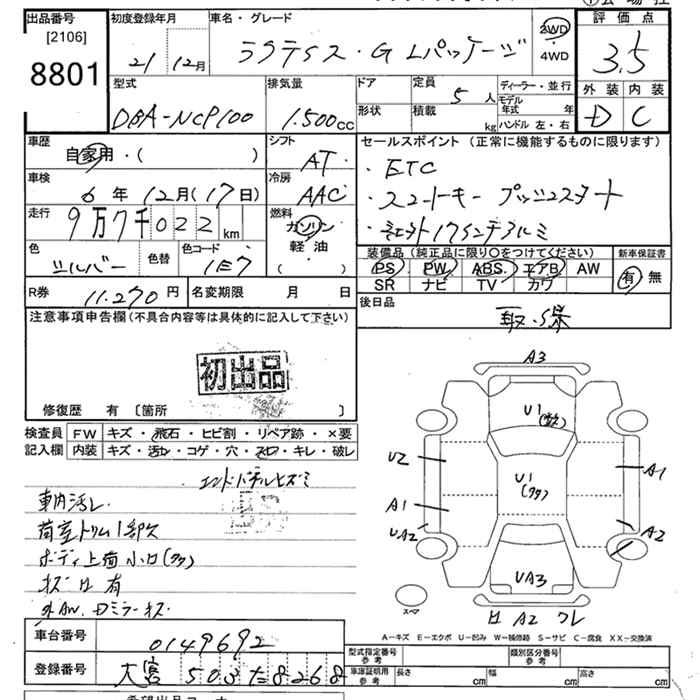 出品番号 初度登録年月 車名・グレード 評価点
[2106]
8801
21 12月 ラクティス・G Lパッケージ 2WD・4WD 3.5
型式 排気量 ドア 定員 ディーラー・並行 外装 内装
DBA-NCP100 1.500cc 5人 モデル年式 年 D C
形状 積載 kg ハンドル 左・右
車歴 シフト セールスポイント (正常に機能するものに限ります)
自家用・( ) AT
・ETC
車検 冷房
6年12月(17日) AAC
・スマートキー プッシュスタート
走行 燃料
9万7千022km ガソリン
・社外17インチアルミ
軽油
( )
色 色替 色コード
シルバー 1E7
装備品(純正品に限り○をつけてください) 新車保証書
PS PW ABS エアB AW 有 無
SR ナビ TV カワ
R券 11.270円 名変期限 月 日 後日品
取・保
注意事項申告欄(不具合内容等は具体的に記入して下さい)
初出品
修復歴 有 〔箇所 〕
検査員 FW キズ・飛石・ヒビ割・リペア跡・×要
記入欄 内装 キズ・汚れ・コゲ・穴・スレ・キレ・破レ
エンドパネルヒズミ
車内汚レ
荷室トリム1部欠
ボディ上面小凹(多)
キズ凹有
外AW. Dミラーキズ
A3
U1
U2
U1
(多)
A1
A1
UA2
A2
UA3
スペア
A2 ワレ
A-キズ E-エクボ U-凹み W-補修跡 S-サビ C-腐食 XX-交換済
車台番号 0149692 型式指定番号 参考 類別区分番号 参考
登録番号 大宮503た8268 車庫証明用 参考 長さ cm 幅 cm 高さ cm